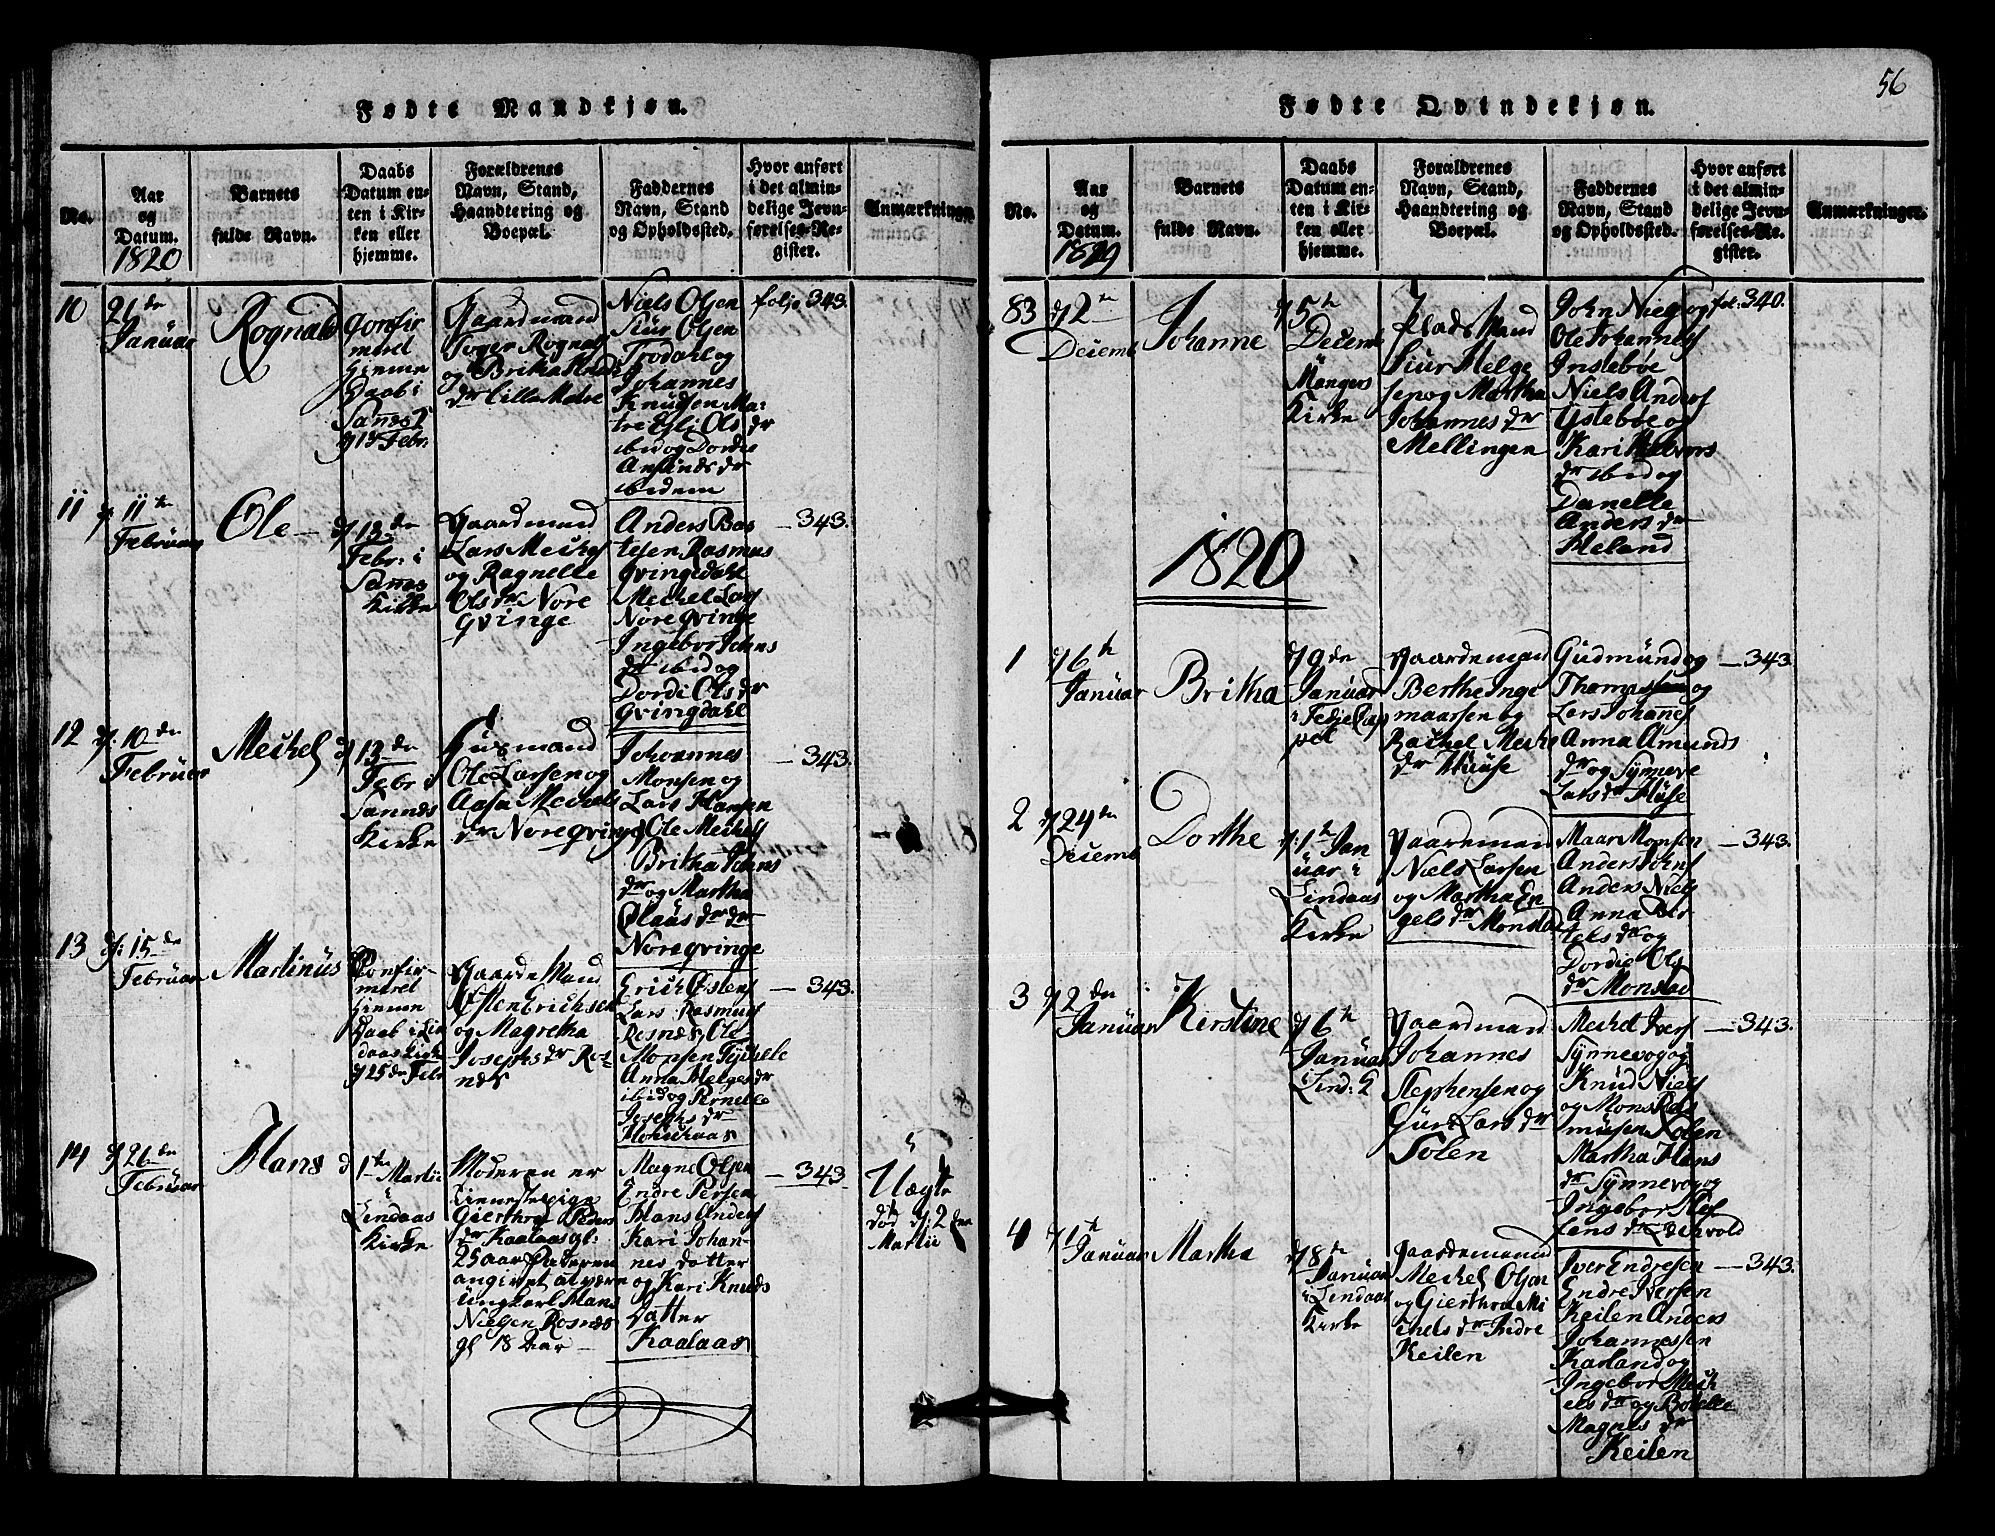 56
Fødte Mandkjøn.
No.
Aar
og
Datum.
1820
Barnets
fulde Navn.
Daabs
Datum en-
ten i Kir-
ken eller
hjemme.
Forældrenes
Navn, Stand,
Haandtering og
Boepæl.
Faddernes
Navn, Stand
og Opholdssted.
Hvor anført
i det almin-
delige Jevn-
førelses-Re-
gister.
Anmærkninger.
10
26 de
Januar
Rognald
Confir
meret
hjemme
Daab i
Sannes
13 Febr.
Gaardmand
Rognas
og Britha
Matre
Niels Olsen
Siur Olsen
Frodahl og
Johannes
Knudsen Ma-
tre Ols dr
ibid og Dordie
Amunds dr
ibidem
folio 343.
11
d. 11 te
Februar
Ole
d 13 de
Febr: i
Sannes
Kirke
Gaardmand
Lars Meckels
og Ragnelle
Ols dr Nore
Qvinge
Anders Bas
tesen Rasmus
Qvingedahl
Meckel Lars
Nore Qvinge
Ingebor Johns
dr ibid og
Dordi Ols dr
Qvingdahl
343.
12
d. 10 de
Februar
Meckel
d 13 de
Febr i
Sannes
Kirke
Husmand
Ole Larsen og
Aasa Meckels
dr Nore Qvinge
Johannes
Monsen og
Lars Hansen
Ole Meckels
Britha Johns
dr og Martha
Olaus dr
Nore Qvinge
343.
13
d. 15 de
Februar
Martinus
Confir-
meret
hjemme
Daab i Lin
daas Kirke
d 25 de Febr
Gaarde Mand
Østen Erichsen
og Magretha
Josephs dr Ros-
næs
Erich Østens
Lars Rasmus
Rosnæs, Ole
Monsen
Anna Helges dr
ibid og Pernelle
Josephs dr
343.
14
d 26 de
Februar
Hans
d 1 te Martii
Lindaas
Kirke
Moderen er
Giertrud Peders
dr Kaalaas gl:
25 aar Faderen
angivet at være
Ungkarl Hans
Nielsen Rosnæs
gl 18 Aar
Magne Olsen
Endre Persen
Hans Anders
Kari Johan-
nes datter
og Kari Knuds
datter
Kaalaas
343
Uægte
død d. 2 den
Martii
Fødte Qvindekjøn.
No.
Aar
og
Datum.
1819
Barnets
fulde Navn.
Daabs
Datum en-
ten i Kir-
ken eller
hjemme.
Forældrenes
Navn, Stand,
Haandtering og
Boepæl.
Faddernes
Navn, Stand
og Opholdssted.
Hvor anført
i det almin-
delige Jevn-
førelses-Re-
gister.
Anmærkninger.
83
d 2 te
Decemb
Johanne
d 5 te
Decemb
Mangers
Kirke
Plads Mand
Siur Helge
sen og Martha
Johannes dr
Mellingen
John Niels og
Ole Johannes
Instebøe
Niels Anders
Ystebøe og
Kari Halvors
dr ibid og
Danelle
Anders dr
Heland
fol: 340.
1820
1
d 6 te
Januar
Britha
d 9 de
Januar
i Fedje Cap
pel
Gaardemand
Berthe Inge
maarsen og
Rachel Meckels
dr Huuse
Gudmund og
Thomes og
Lars Johannes
Anna Amunds
dr og Synneve
Lars dr Huse
343.
2
d 24 de
Decemb
Dorthe
d. 1 te Jan
uar i
Lindaas
Kirke
Gaardemand
Niels Larsen
og Martha En
gels dr Monstad
Maar Monsen
Anders Johns
Anders Niels
Anna Ber
tels dr og
Dordie Ols
dr Monstad
343.
3
d 2 den
Januar
Kirstine
d 6 te
Januar
i Lind: K
Gaardmand
Johannes
Stephensen og
Guri Lars dr
Solen
Meckel Ivers
Synnevog og
Knud Niels
og Mons Ras
musen Solen
Martha Hans
dr Synnevog og
Ingebor
343.
4
d 1 te
Januar
Martha
d 8 te
Januar
i Lindaas
Kirke
Gaardemand
Meckel Olsen
og Giertrud Mi
chels dr Indre
Keilen
Iver Endresen
Endre Iversen
Keilen Anders
Johannessen
Karland og
Ingebor Meck
els dr og Botelle
Magnes dr
Keilen
343.